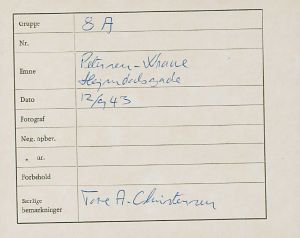 Gruppe 8 A
Nr.
Emne Petersen-Krane
Hejmdalsgade
Dato 12/9 43
Fotograf
Neg. opbev.
„ nr.
Forbehold
Særlige bemærkninger Tove A. Christensen